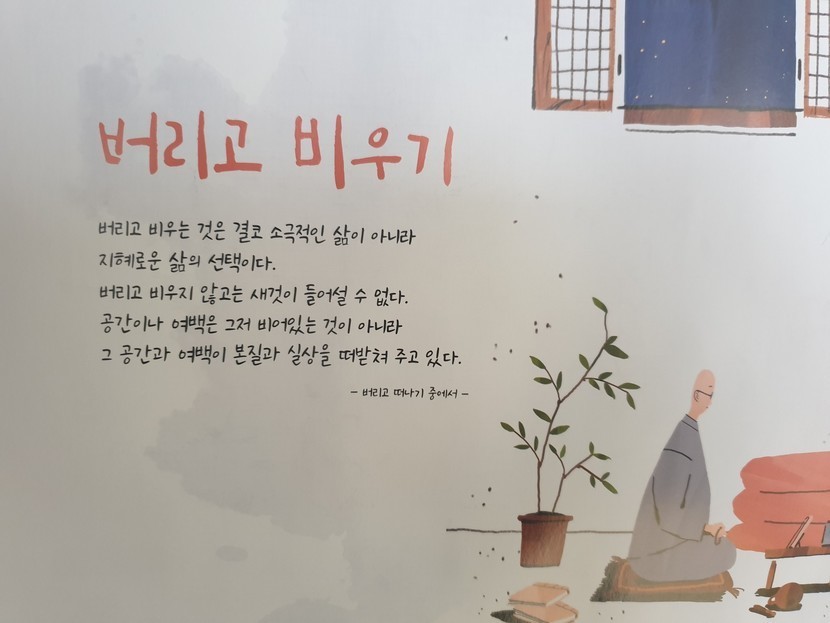 버리고 비우기
버리고 비우는 것은 결코 소극적인 삶이 아니라
지혜로운 삶의 선택이다.
버리고 비우지 않고는 새것이 들어설 수 없다.
공간이나 여백은 그저 비어있는 것이 아니라
그 공간과 여백이 본질과 실상을 떠받쳐 주고 있다.
- 버리고 떠나기 중에서 -